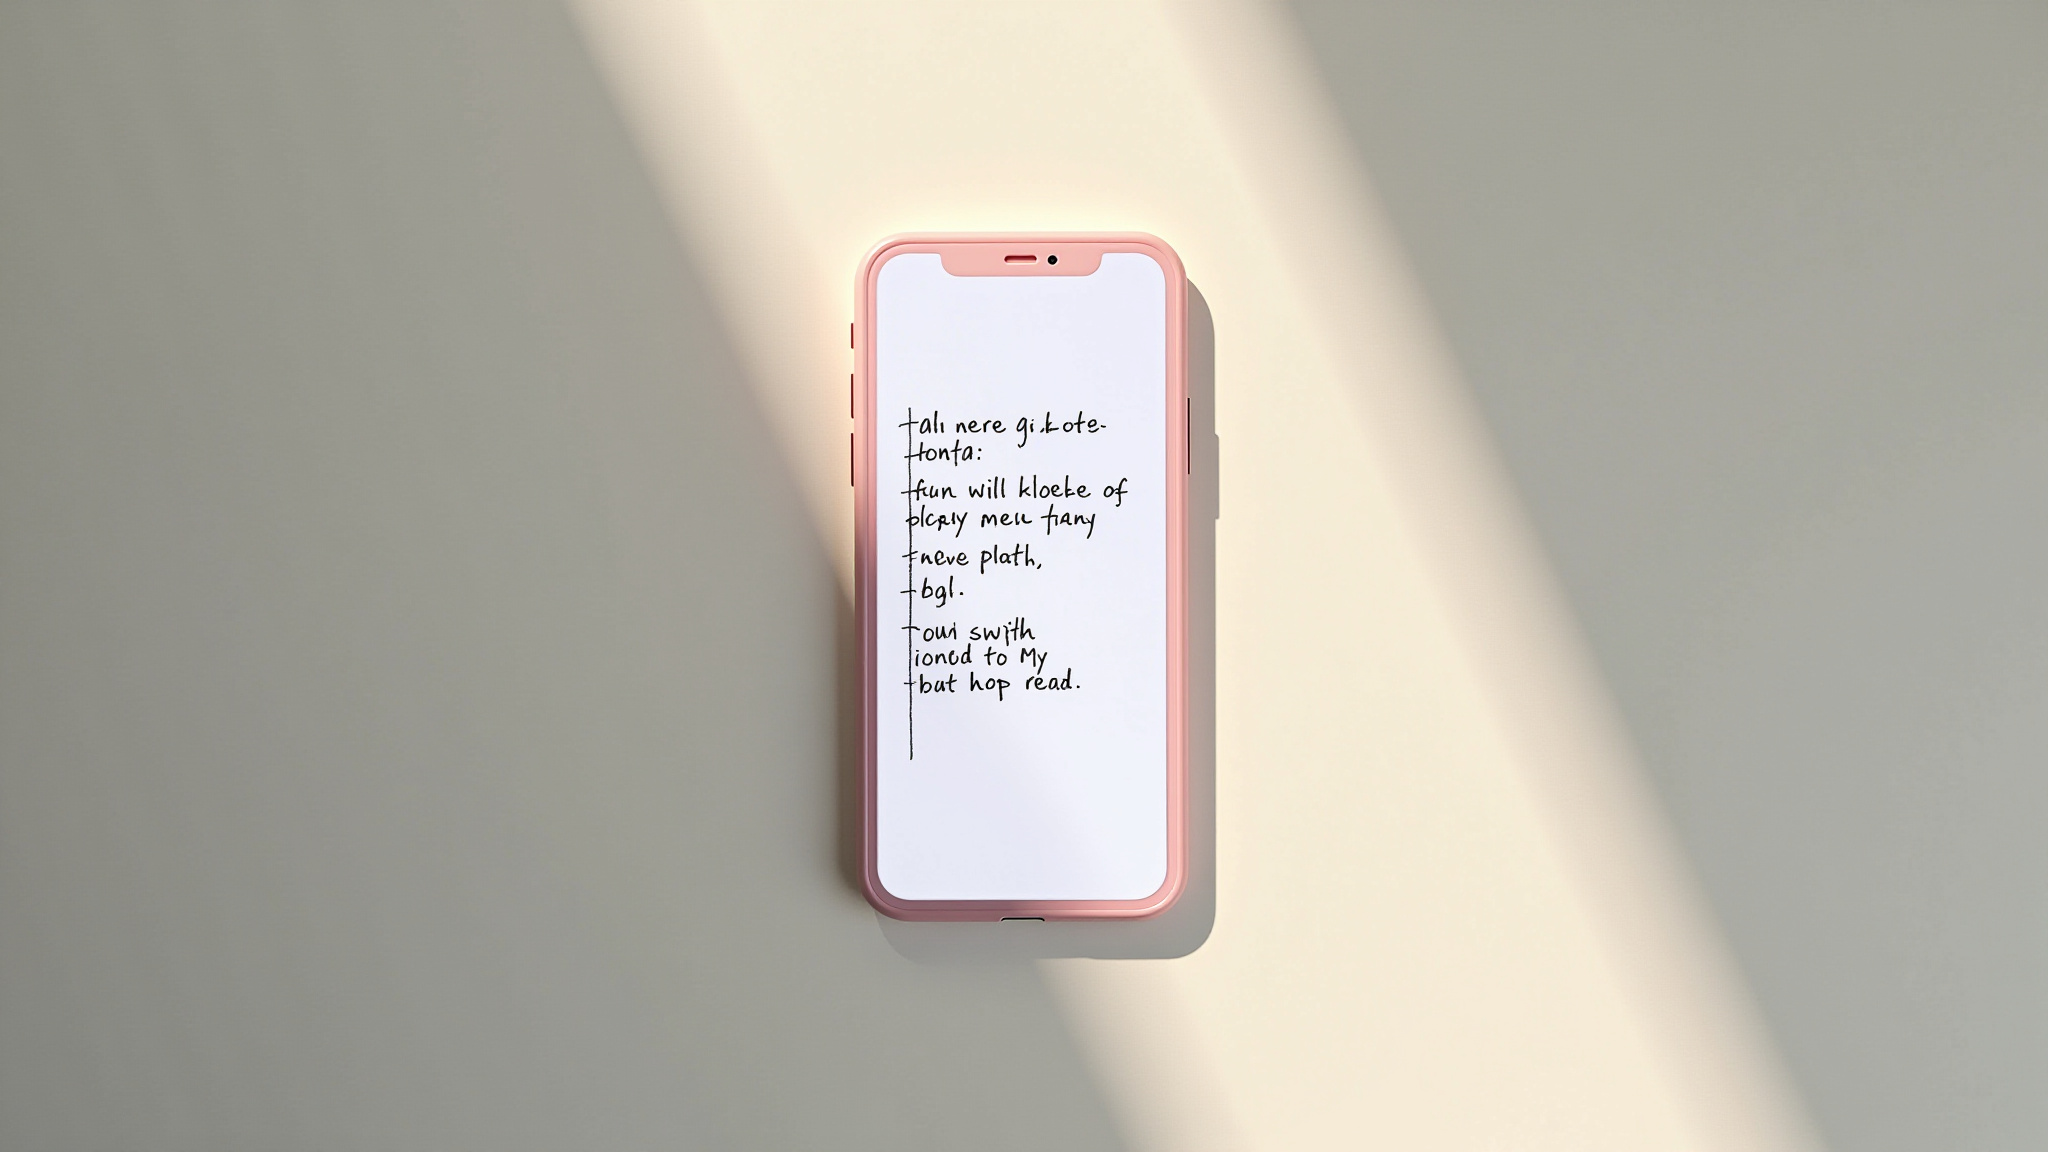 ali nere gi.kote-
tonta:
fun will kloeke of
meu fiany
neve plath,
bgl.
our swith
ioned to My
but hop read.